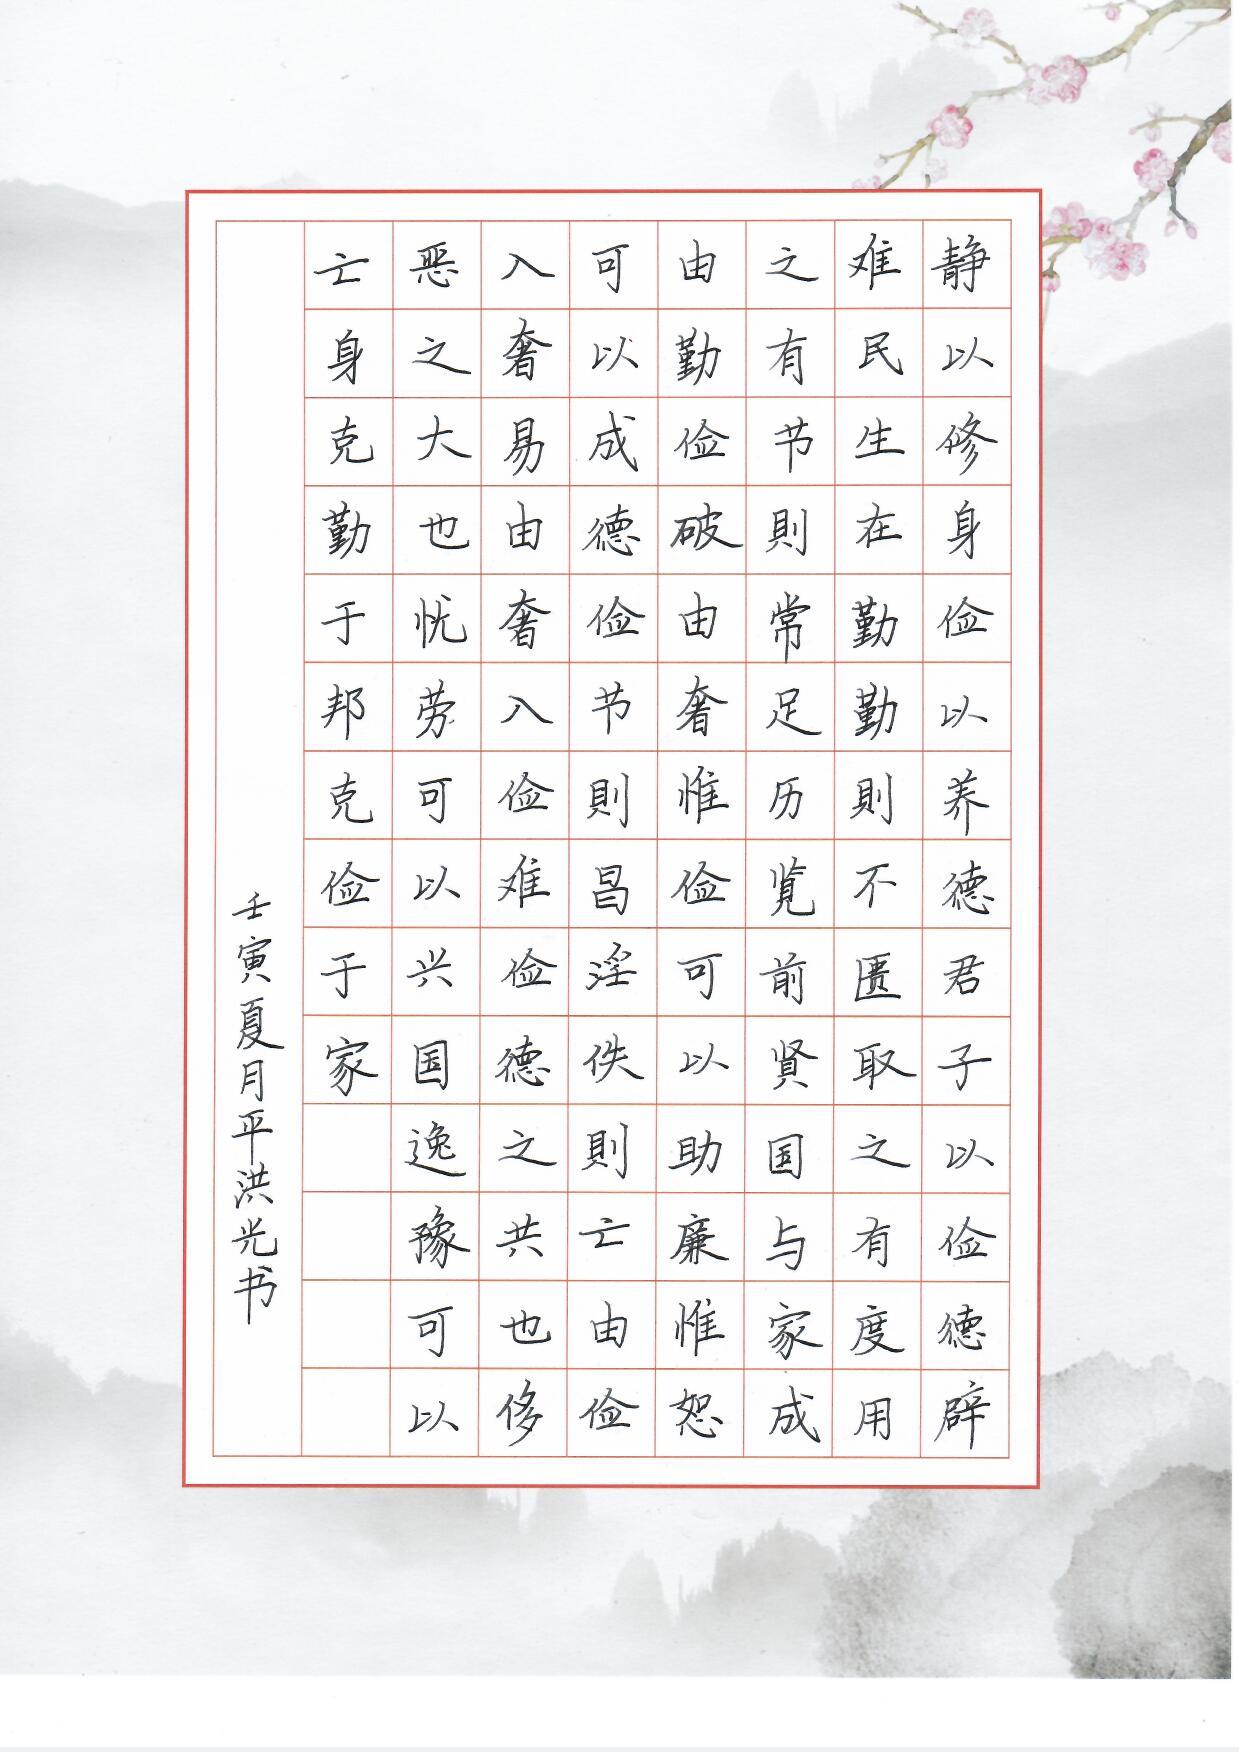 静以修身俭以养德君子以俭德辟
难民生在勤勤則不匮取之有度用
之有节則常足历览前贤国与家成
由勤俭破由奢惟俭可以助廉惟恕
可以成德俭节則昌淫佚則亡由俭
入奢易由奢入俭难俭德之共也侈
恶之大也忧劳可以兴国逸豫可以
亡身克勤于邦克俭于家
壬寅夏月平洪光书